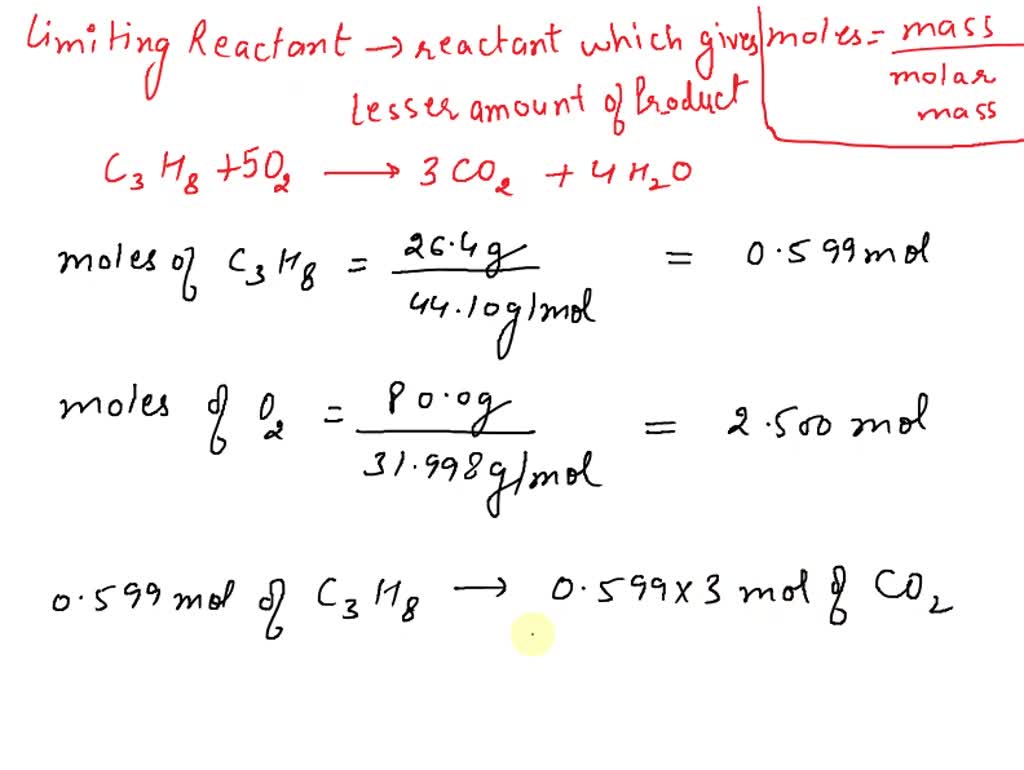 Limiting Reactant → reactant which gives
lesser amount of Product
moles = mass
molar
mass
C₃H₈ + 5O₂ → 3CO₂ + 4H₂O
moles of C₃H₈ = 26.4g / 44.10g/mol = 0.599 mol
moles of O₂ = 80.0g / 31.998g/mol = 2.500 mol
0.599 mol of C₃H₈ → 0.599 × 3 mol of CO₂